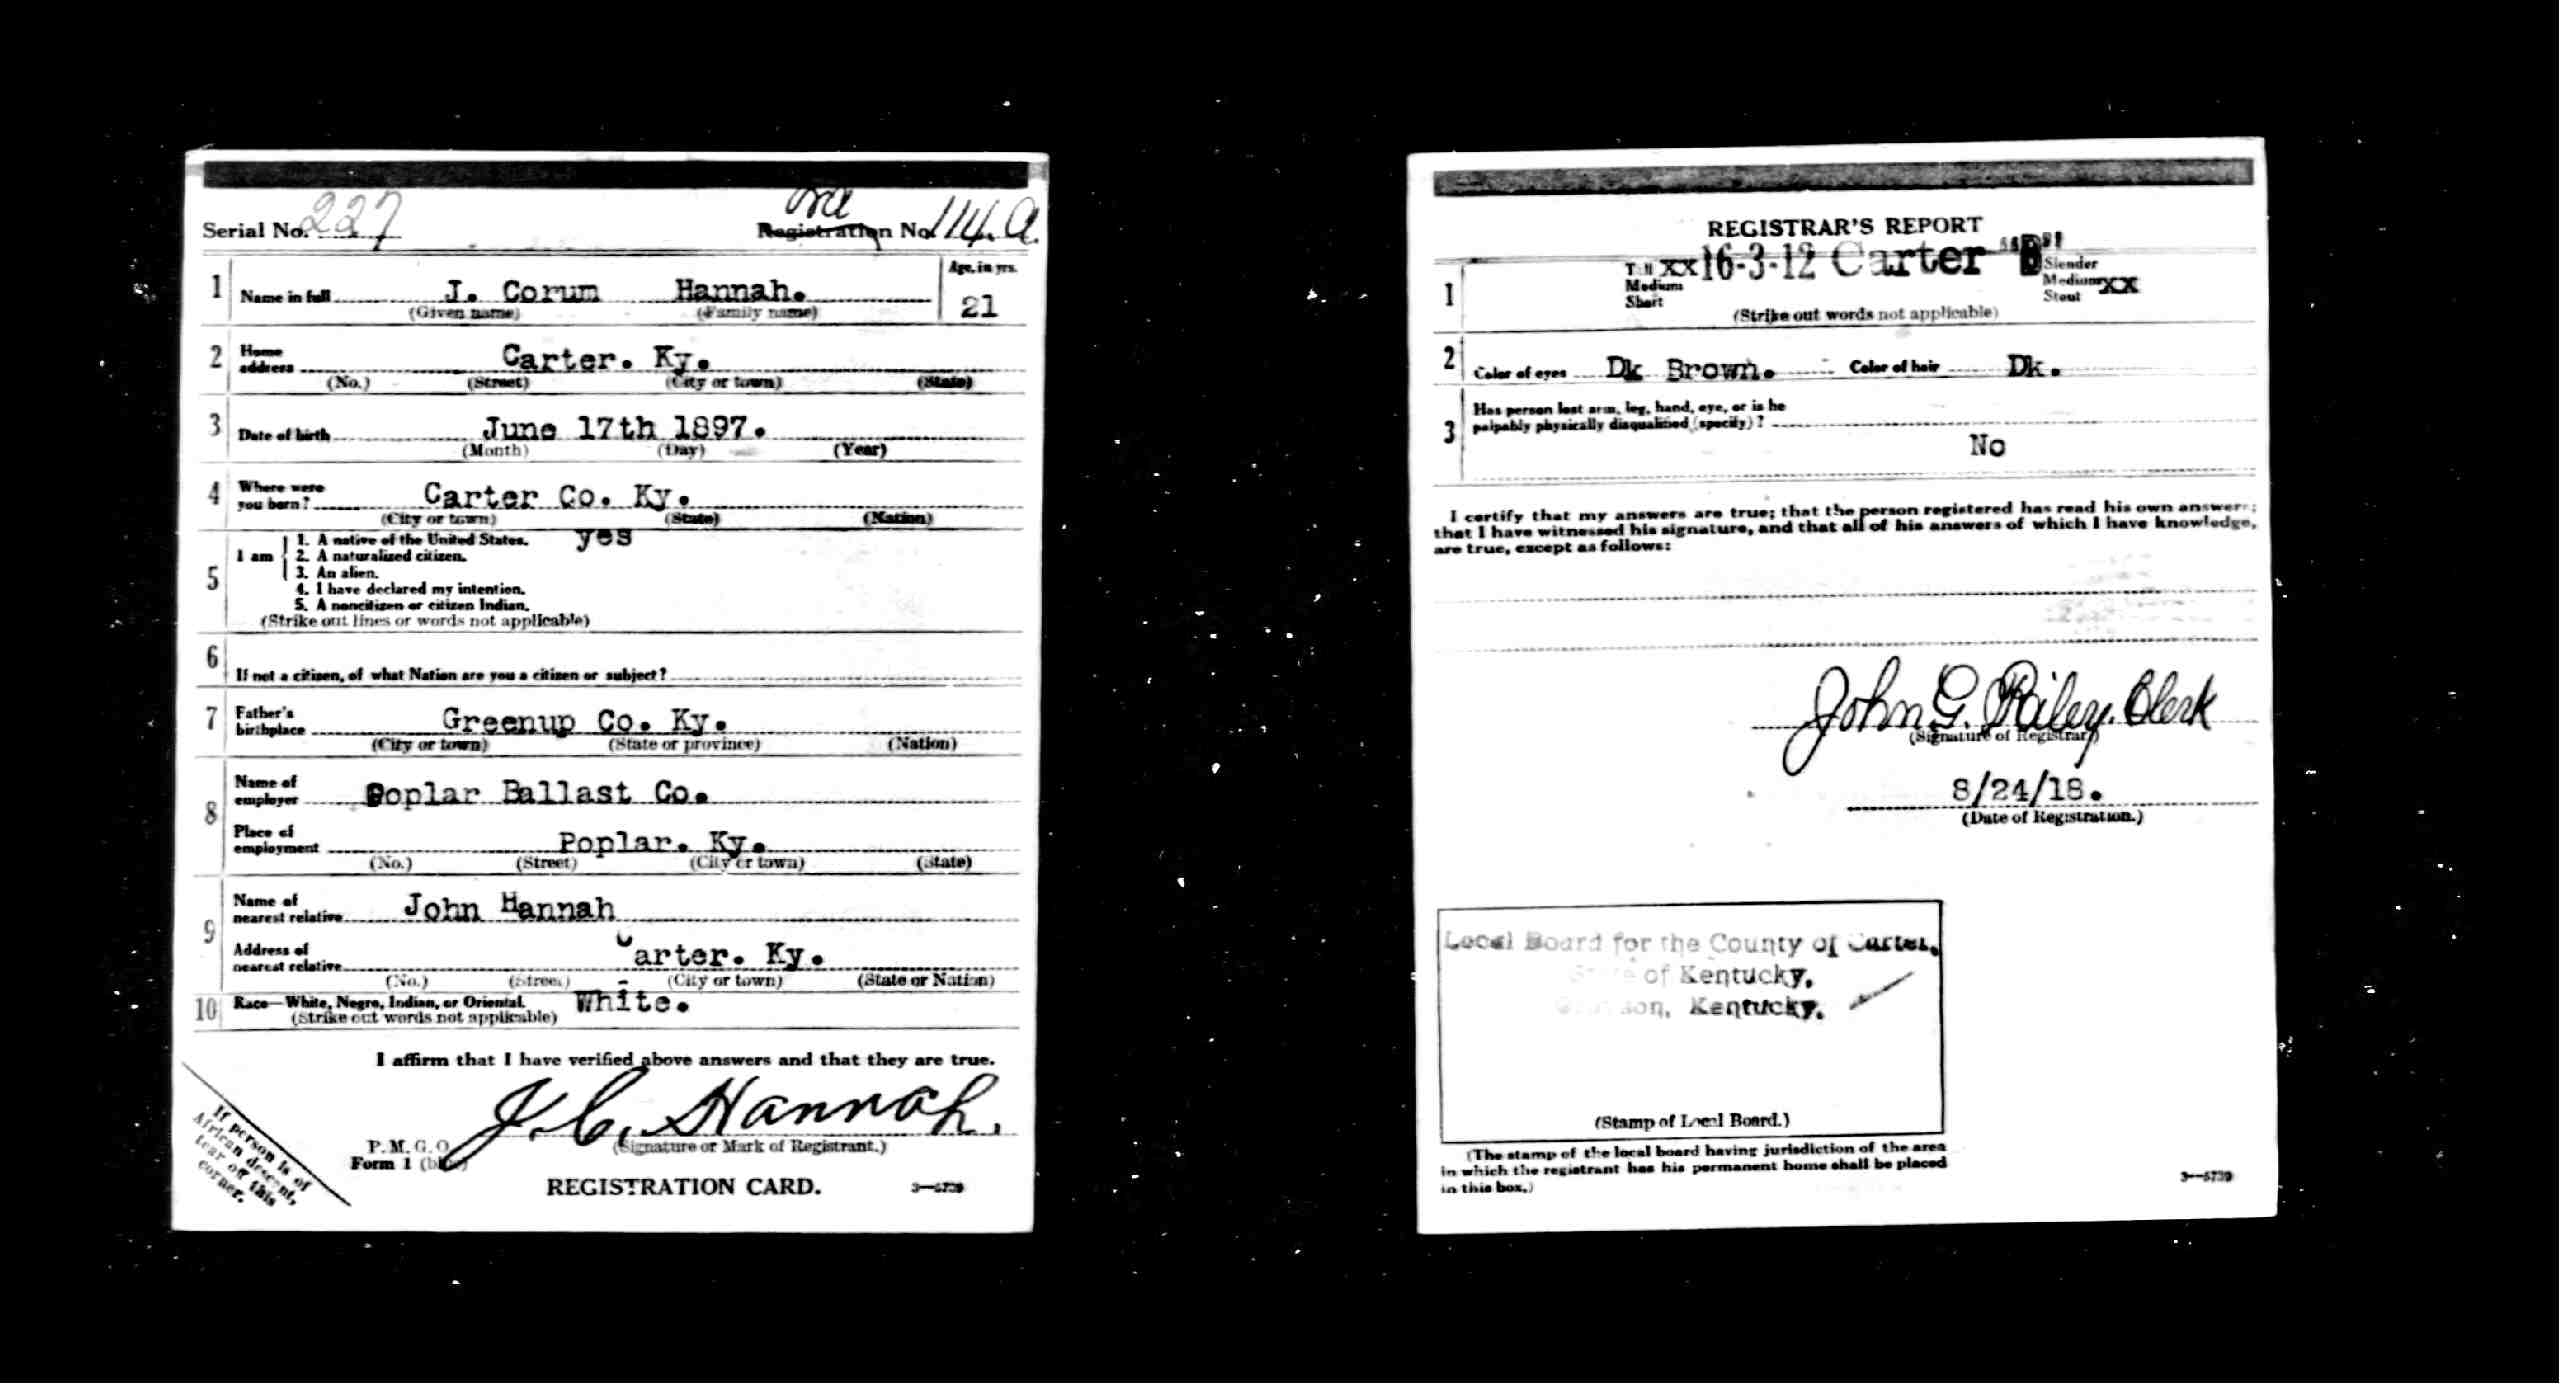 Serial No. 227 Registration No. 114. A.
Ord
1 Name in full J. Corum Hannah. Age, in yrs.
(Given name) (Family name) 21
2 Home address Carter. Ky.
(No.) (Street) (City or town) (State)
3 Date of birth June 17th 1897.
(Month) (Day) (Year)
4 Where were you born? Carter Co. Ky.
(City or town) (State) (Nation)
5 I am 1. A native of the United States. yes
2. A naturalized citizen.
3. An alien.
4. I have declared my intention.
5. A noncitizen or citizen Indian.
(Strike out lines or words not applicable)
6 If not a citizen, of what Nation are you a citizen or subject?
7 Father's birthplace Greenup Co. Ky.
(City or town) (State or province) (Nation)
8 Name of employer Poplar Ballast Co.
Place of employment Poplar. Ky.
(No.) (Street) (City or town) (State)
9 Name of nearest relative John Hannah
Address of nearest relative Carter. Ky.
(No.) (Street) (City or town) (State or Nation)
10 Race—White, Negro, Indian, or Oriental. White.
(Strike out words not applicable)
I affirm that I have verified above answers and that they are true.
J. C. Hannah.
P. M. G. O. (Signature or Mark of Registrant.)
Form 1 (blue)
REGISTRATION CARD. 3—5739
If person is
African descent,
tear off this
corner.
REGISTRAR'S REPORT
16-3-12 Carter "B"
1 Tall XX Slender
Medium Medium XX
Short Stout
(Strike out words not applicable)
2 Color of eyes Dk Brown. Color of hair Dk.
3 Has person lost arm, leg, hand, eye, or is he
palpably physically disqualified (specify)?
No
I certify that my answers are true; that the person registered has read his own answers;
that I have witnessed his signature, and that all of his answers of which I have knowledge,
are true, except as follows:
John G. Riley, Clerk
(Signature of Registrar)
8/24/18.
(Date of Registration.)
Local Board for the County of Carter,
State of Kentucky,
Kentucky.
(Stamp of Local Board.)
(The stamp of the local board having jurisdiction of the area
in which the registrant has his permanent home shall be placed
in this box.)
3—5739